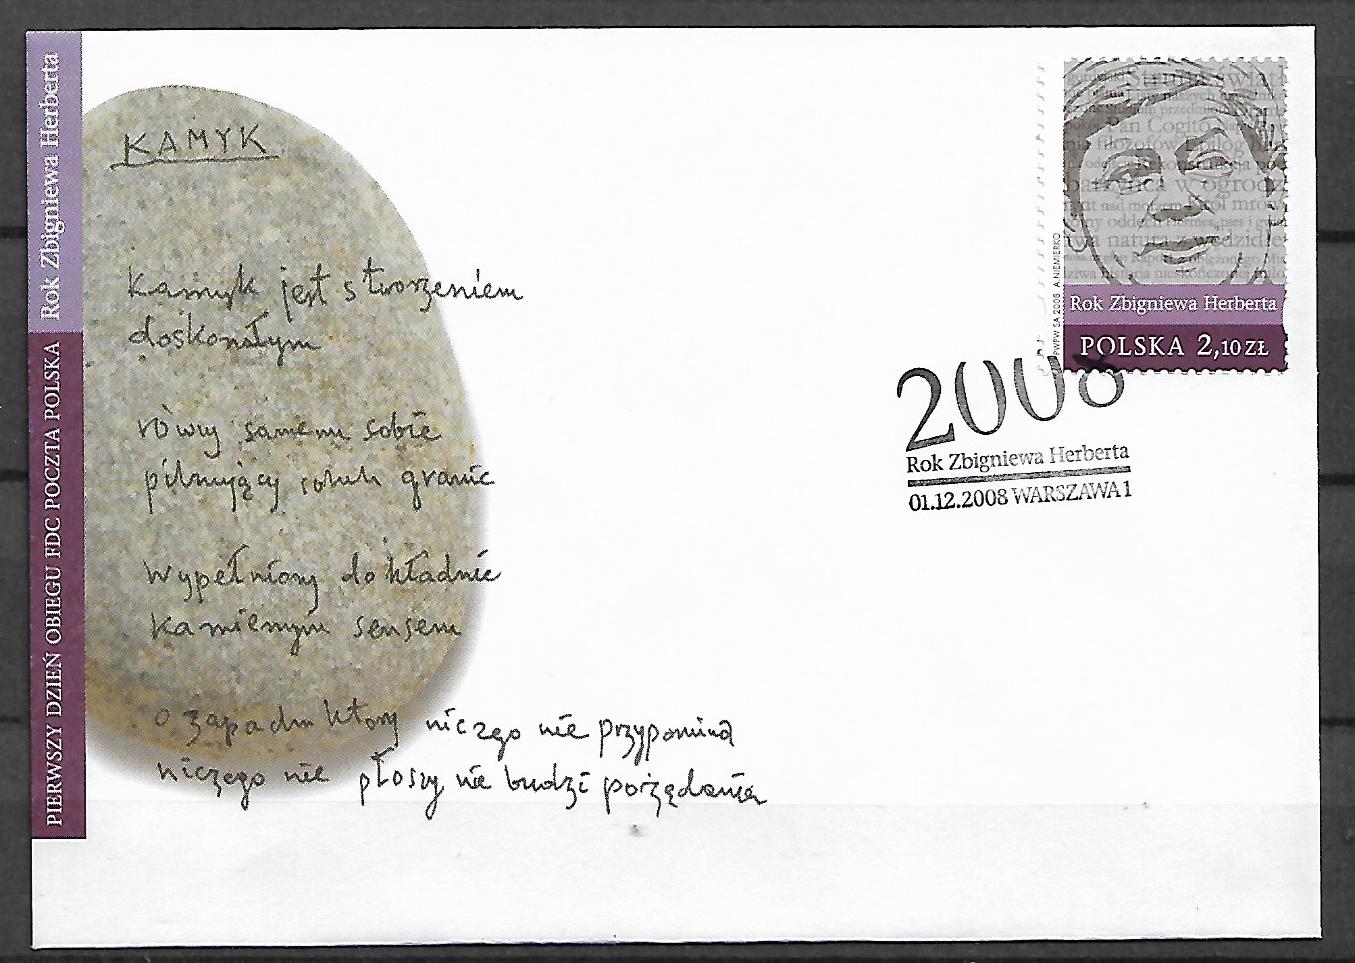 Rok Zbigniewa Herberta
PIERWSZY DZIEŃ OBIEGU FDC POCZTA POLSKA
KAMYK
Kamyk jest stworzeniem
doskonałym
równy samemu sobie
pilnujący swych granic
wypełniony dokładnie
kamiennym sensem
o zapachu który niczego nie przypomina
niczego nie płoszy nie budzi pożądania
Pan Cogito
w ogrodzie
nad morzem
PWPW SA 2008 A. NIEMIERKO
Rok Zbigniewa Herberta
POLSKA 2,10 ZŁ
2008
Rok Zbigniewa Herberta
01.12.2008 WARSZAWA 1